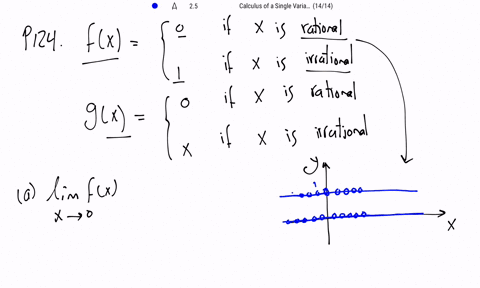 2.5 Calculus of a Single Varia... (14/14)
P124. f(x) = { 0 if x is rational
1 if x is irrational
g(x) = { 0 if x is rational
x if x is irrational
(a) lim f(x)
x → 0
y
1
x